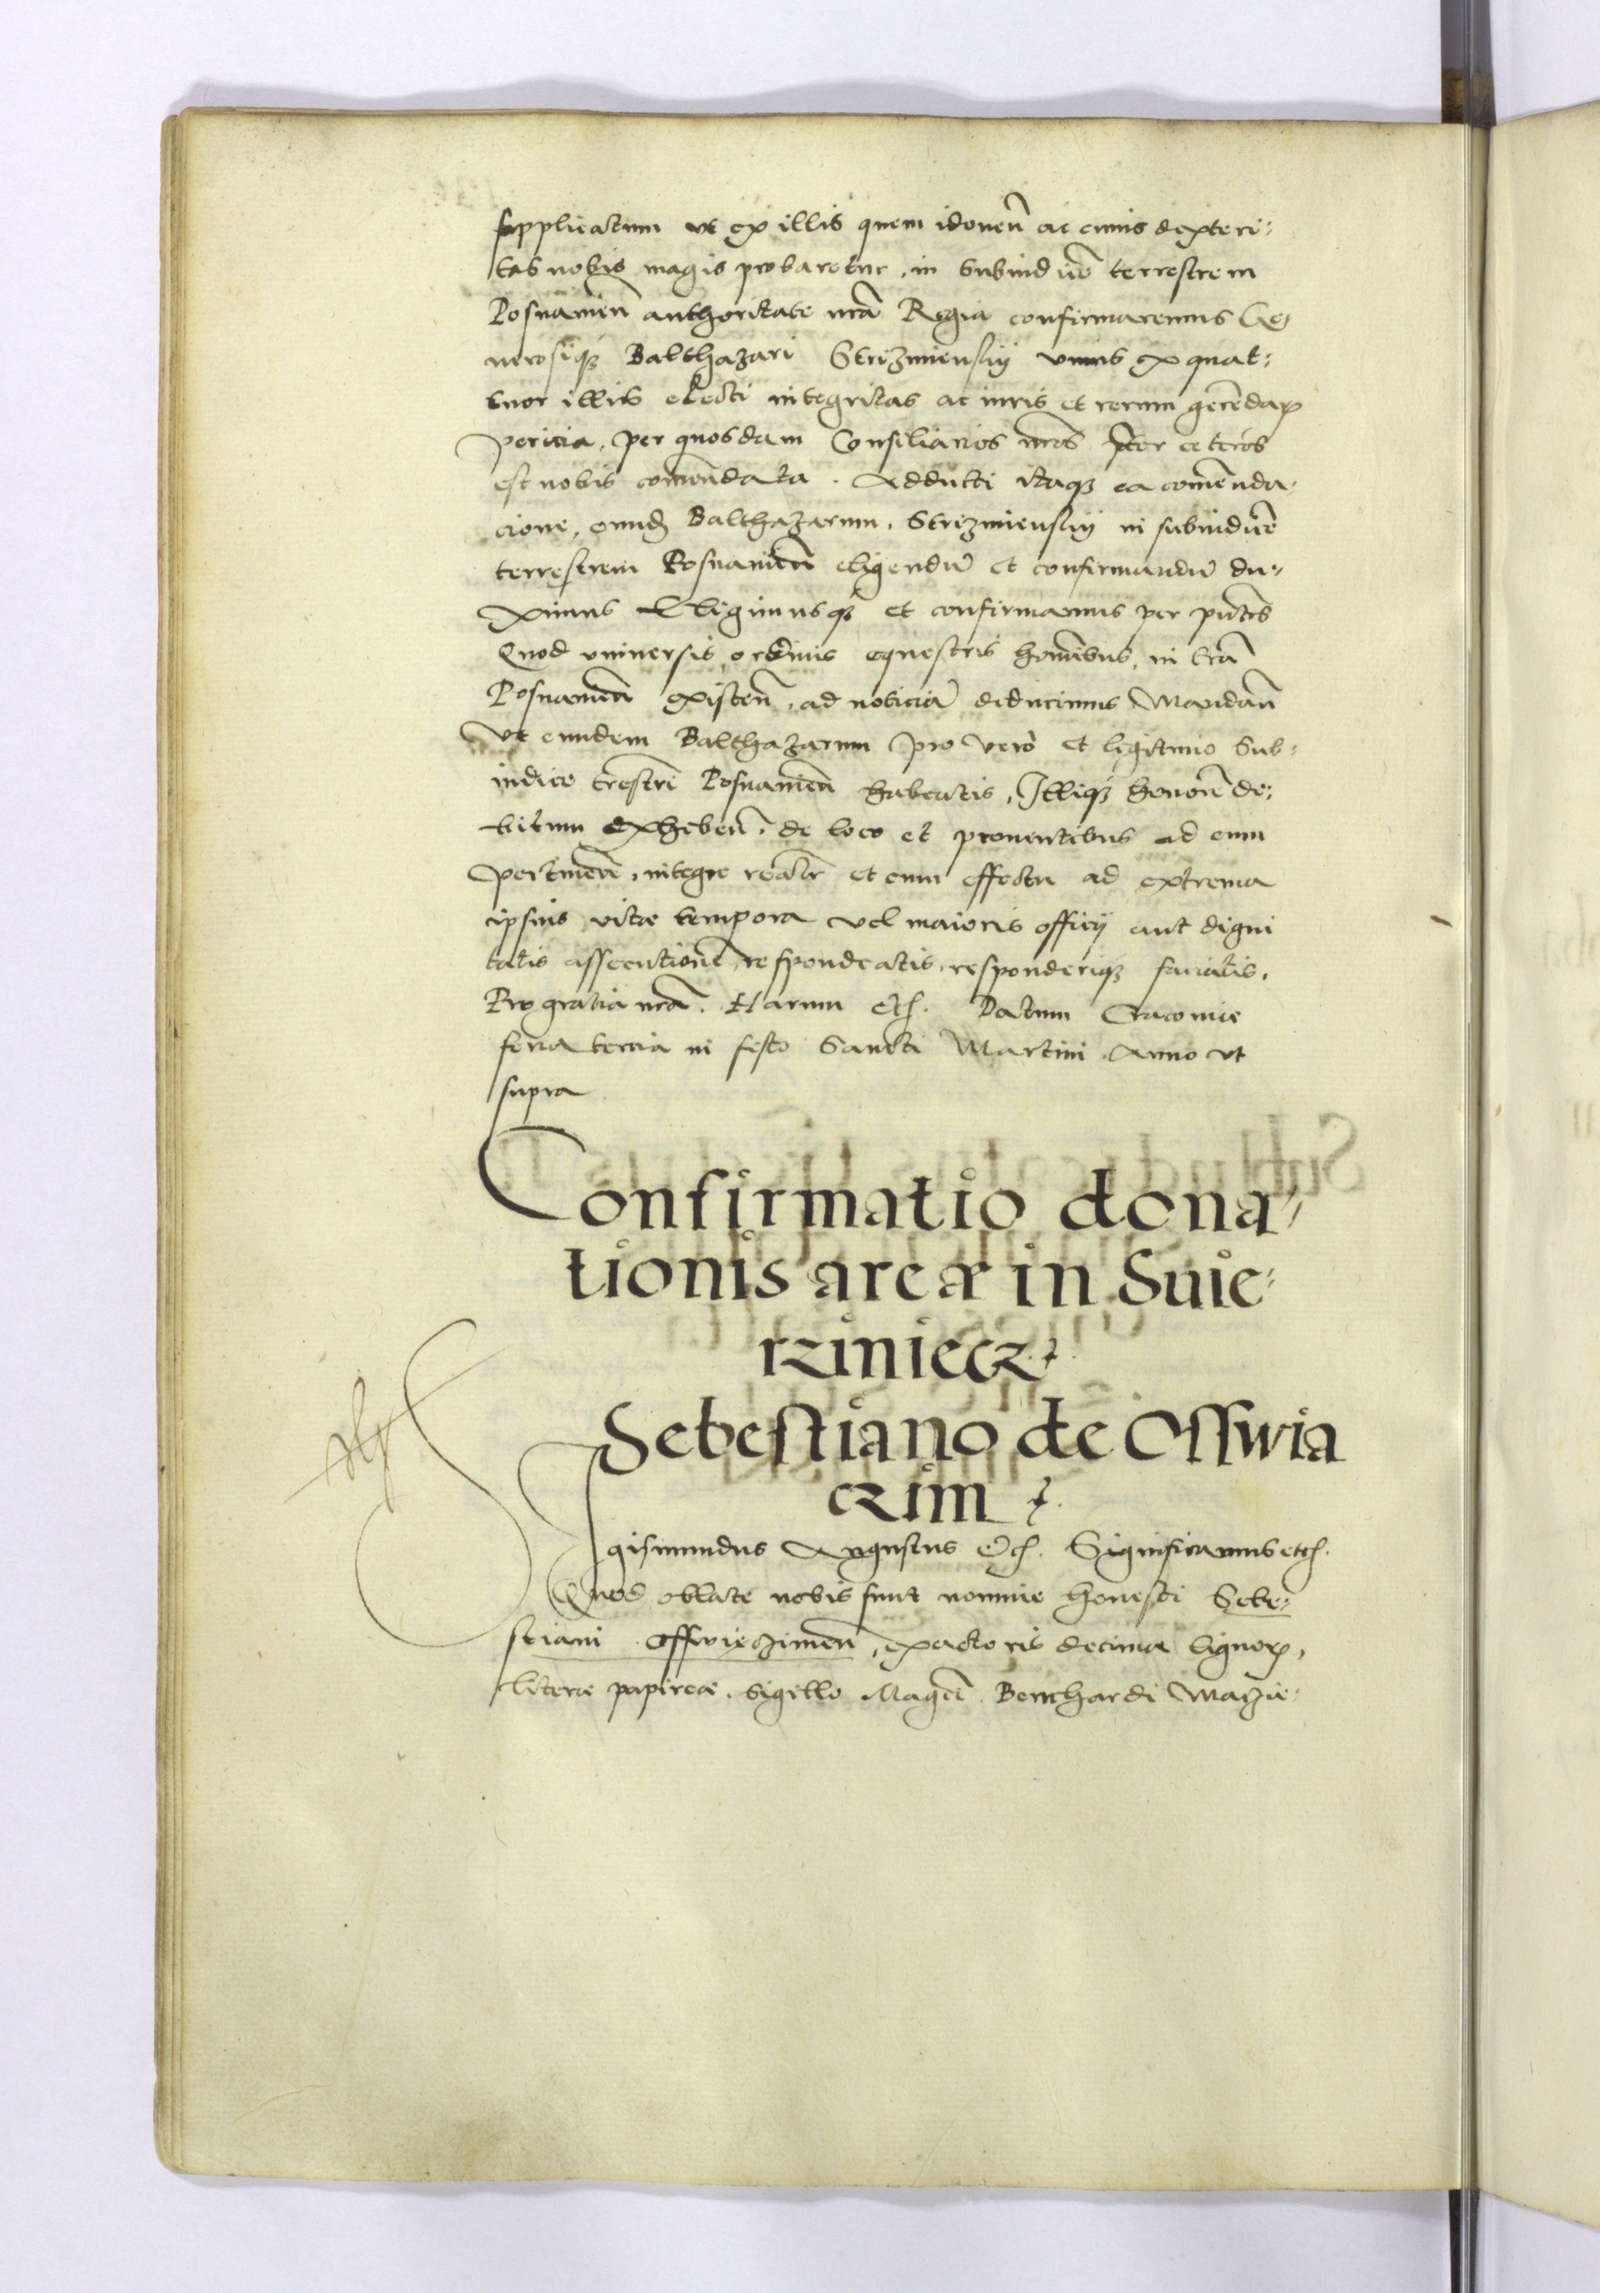 supplicatum ut ex illis quem idoneū ac cuius dexteri-
tas nobis magis probaretur, in Subiudicē terrestrem
Posnanień authoritate nrā Regia confirmaremus Ge-
nerosiqꝫ Balthazari Strizmienskij unius ex quat-
tuor illis electi integritas ac iuris et rerum gerēdaꝝ
pericia, per quosdam Consiliarios nros inter ceteros
est nobis comēndata. Adducti itaqꝫ ea comēnda-
cione, eund Balthazarum, Strizmienskij in subiudicē
terrestrem Posnanień eligendū et confirmandū du-
ximus Eligimusqꝫ et confirmamus per pntēs
Quod universis, ordinis equestris hominibus, in trā
Posnanień existeñ, ad noticiā deducimus Mandañ
Ut eundem Balthazarum pro vero et legitimo Sub-
iudice trestri Posnanień habeatis, Illiqꝫ honorē de-
bitum exhibeñ, de loco et proventibus ad eum
pertineñ, integre realr et cum effectu ad extrema
ipsius vitæ tempora vel maioris officij aut digni
tatis assecutionē, respondeatis, responderiqꝫ faciatis,
Pro gratia nrā. Harum etc. Datum Cracoviæ
feria tercia in festo Sancti Martini Anno ut
supra
Confirmatio dona-
tionis areæ in Suie-
rziniecz
Sebestiano de Osswia
czim
Sigismundus Augustus etc. Significamus etc.
Quod oblate nobis sunt nomine honesti Sebe-
stiani Osswieczimeñ, exactoris decimæ lignoꝝ,
literæ papireæ, sigillo Magci Bernhardi Maczie-